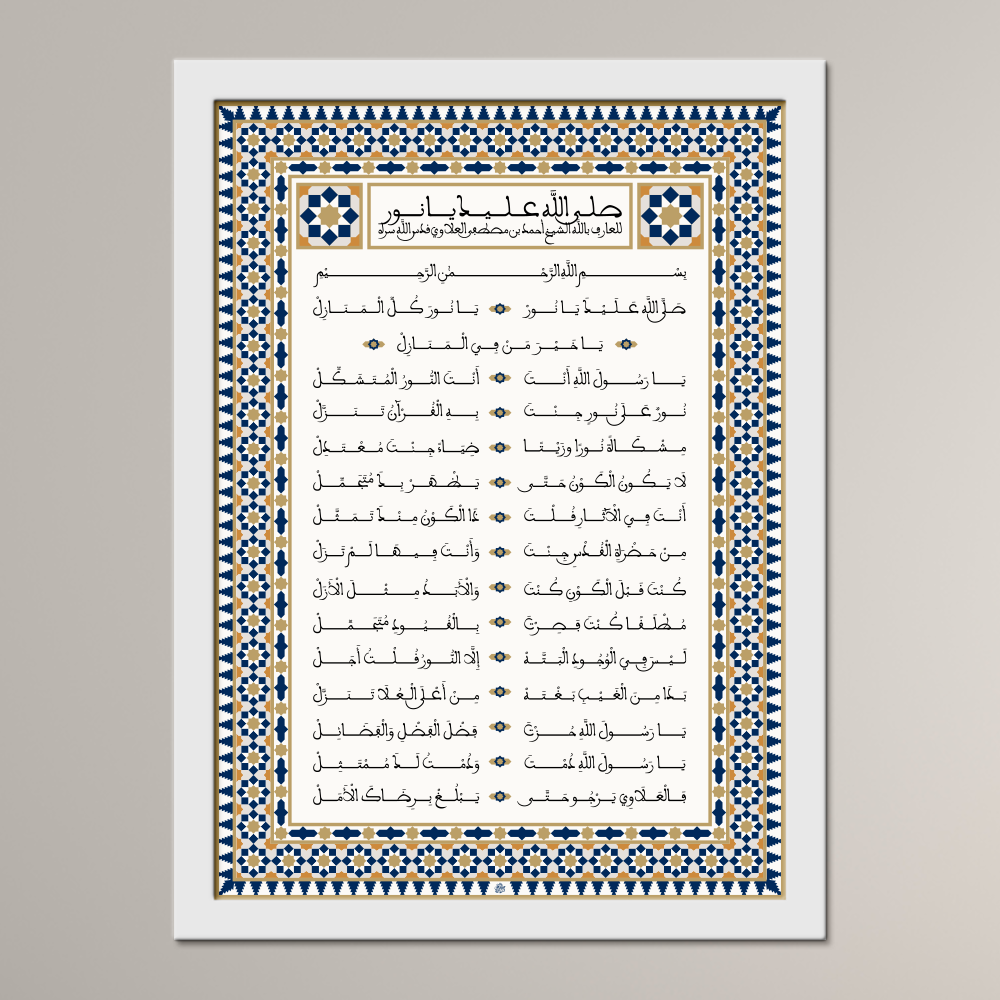 صلى الله عليك يا نور
للعارف بالله الشيخ أحمد بن مصطفى العلاوي قدس الله سره
بِسْمِ اللَّهِ الرَّحْمٰنِ الرَّحِيمِ
صَلَّى اللَّه عَلَيْكَ يَا نُورْ يَا نُورَ كُلِّ الْمَنَازِلْ
يَا خَيْرَ مَنْ فِي الْمَنَازِلْ
يَا رَسُولَ اللَّهِ أَنْتَ أَنْتَ النُّورُ الْمُتَشَكِّلْ
نُورٌ عَلَى نُورٍ جِئْتَ بِهِ الْقُرْآنُ تَنَزَّلْ
مِشْكَاةٌ نُورًا وَزَيْتًا ضِيَاءً جِئْتَ مُعْتَدِلْ
لَا يَكُونُ الْكَوْنُ حَتَّى يَظْهَرْ بِكَ مُتَجَمِّلْ
أَنْتَ فِي الْآثَارِ قُلْتَ ذَا الْكَوْنُ مِنْكَ تَمَثَّلْ
مِنْ حَضْرَةِ الْقُدْسِ جِئْتَ وَأَنْتَ فِيهَا لَمْ تَزَلْ
كُنْتَ قَبْلَ الْكَوْنِ كُنْتَ وَالْأَبَدُ مِثْلَ الْأَزَلْ
مُطْلَقًا كُنْتَ قَصِرْتَ بِالْقُيُودِ مُتَجَمِّلْ
لَيْسَ فِي الْوُجُودِ الْبَتَّةَ إِلَّا النُّورُ قُلْتُ أَجَلْ
بَدَا مِنَ الْغَيْبِ بَغْتَةً مِنْ أَعْلَى الْعُلَا تَنَزَّلْ
يَا رَسُولَ اللَّهِ حُزْتَ فَضْلَ الْفَضْلِ وَالْفَضَائِلْ
يَا رَسُولَ اللَّهِ دُمْتَ وَدُمْتُ لَكَ مُمْتَثِلْ
فَالْعَلَاوِي يَرْجُو حَتَّى يَبْلُغْ بِرِضَاكَ الْأَمَلْ